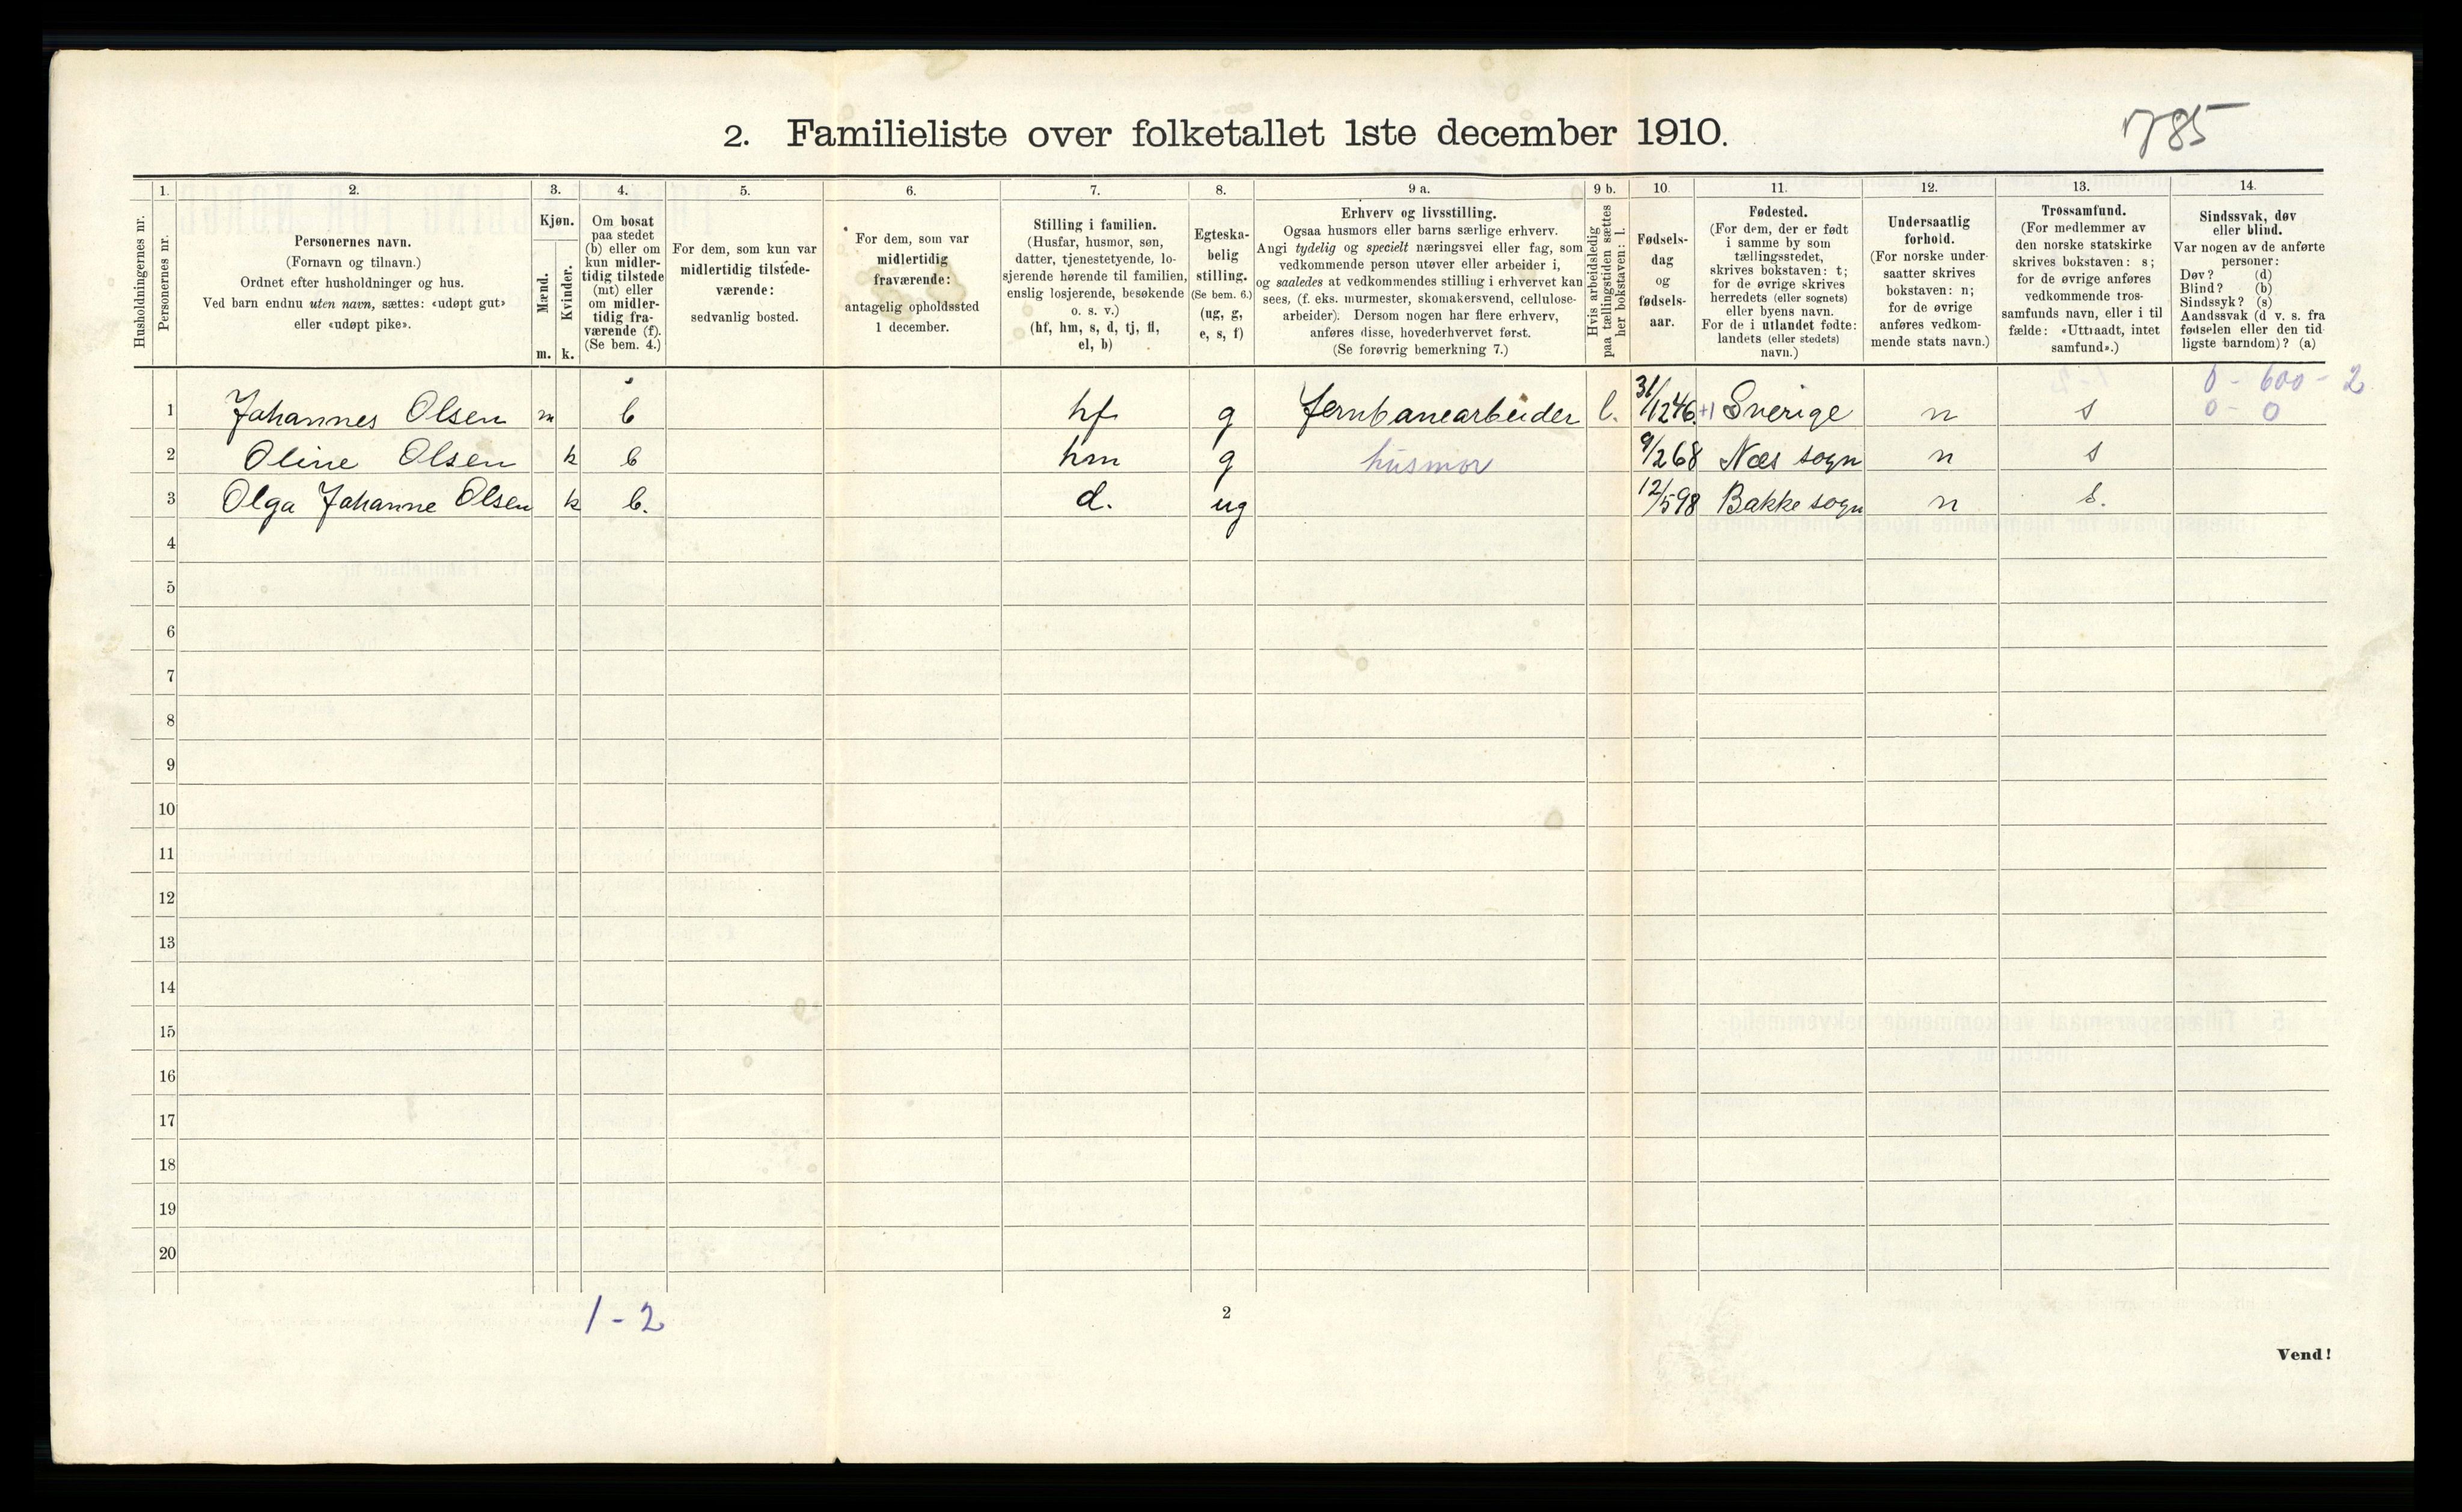 2. Familieliste over folketallet 1ste december 1910.
785
Husholdningernes nr.
1.
Personernes nr.
2.
Personernes navn.
(Fornavn og tilnavn.)
Ordnet efter husholdninger og hus.
Ved barn endnu uten navn, sættes: «udøpt gut»
eller «udøpt pike».
3.
Kjøn.
Mænd.
Kvinder.
m. k.
4.
Om bosat
paa stedet
(b) eller om
kun midler-
tidig tilstede
(mt) eller
om midler-
tidig fra-
værende (f).
(Se bem. 4.)
5.
For dem, som kun var
midlertidig tilstede-
værende:
sedvanlig bosted.
6.
For dem, som var
midlertidig
fraværende:
antagelig opholdssted
1 december.
7.
Stilling i familien.
(Husfar, husmor, søn,
datter, tjenestetyende, lo-
sjerende hørende til familien,
enslig losjerende, besøkende
o. s. v.)
(hf, hm, s, d, tj, fl,
el, b)
8.
Egteska-
belig
stilling.
(Se bem. 6.)
(ug, g,
e, s, f)
9 a.
Erhverv og livsstilling.
Ogsaa husmors eller barns særlige erhverv.
Angi tydelig og specielt næringsvei eller fag, som
vedkommende person utøver eller arbeider i,
og saaledes at vedkommendes stilling i erhvervet kan
sees, (f. eks. murmester, skomakersvend, cellulose-
arbeider). Dersom nogen har flere erhverv,
anføres disse, hovederhvervet først.
(Se forøvrig bemerkning 7.)
9 b.
Hvis arbeidsledig
paa tællingstiden sættes
her bokstaven: l.
10.
Fødsels-
dag
og
fødsels-
aar.
11.
Fødested.
(For dem, der er født
i samme by som
tællingsstedet,
skrives bokstaven: t;
for de øvrige skrives
herredets (eller sognets)
eller byens navn.
For de i utlandet fødte:
landets (eller stedets)
navn.)
12.
Undersaatlig
forhold.
(For norske under-
saatter skrives
bokstaven: n;
for de øvrige
anføres vedkom-
mende stats navn.)
13.
Trossamfund.
(For medlemmer av
den norske statskirke
skrives bokstaven: s;
for de øvrige anføres
vedkommende tros-
samfunds navn, eller i til
fælde: «Uttraadt, intet
samfund».)
14.
Sindssvak, døv
eller blind.
Var nogen av de anførte
personer:
Døv? (d)
Blind? (b)
Sindssyk? (s)
Aandssvak (d v. s. fra
fødselen eller den tid
ligste barndom)? (a)
0 - 600 - 2
1 Johannes Olsen m b hf g Jernbanearbeider l. 31/12 46 +1 Sverige n s 0 - 0
2 Oline Olsen k b hm g husmor 9/2 68 Næs sogn n s
3 Olga Johanne Olsen k b. d. ug 12/5 98 Bakke sogn n s.
4
5
6
7
8
9
10
11
12
13
14
15
16
17
18
19
20
1 - 2
2
Vend!